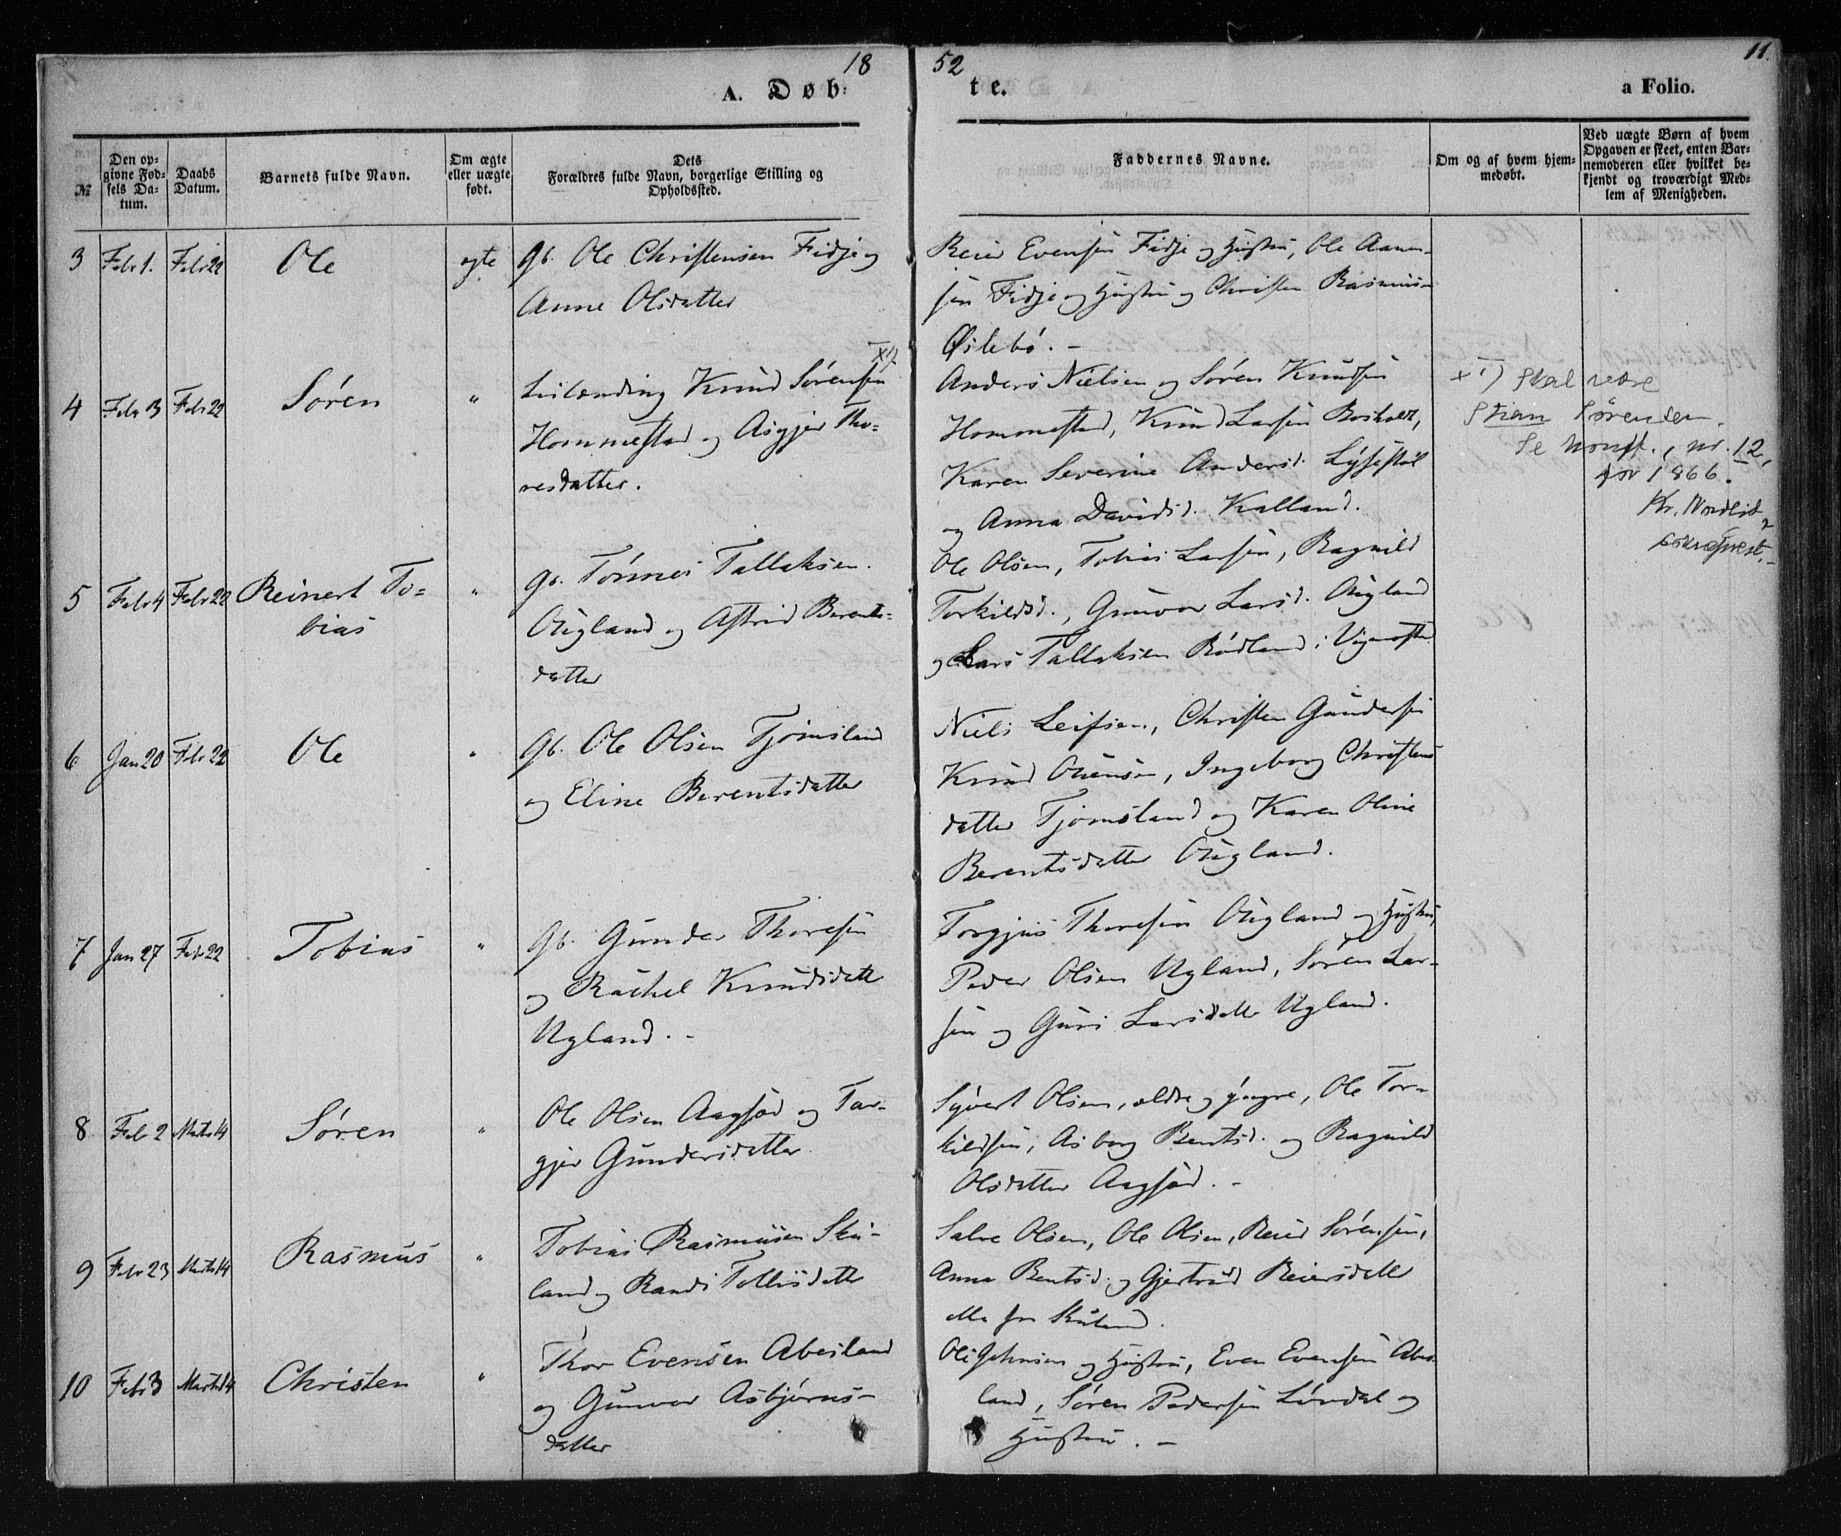 18 52
11.
A. Døb-
te.
a Folio.
№
Den op-
givne Fød-
sels Da-
tum.
Daabs
Datum.
Barnets fulde Navn.
Om ægte
eller uægte
født.
Dets
Forældres fulde Navn, borgerlige Stilling og
Opholdssted.
Faddernes Navne.
Om og af hvem hjem-
medøbt.
Ved uægte Børn af hvem
Opgaven er skeet, enten Bar-
nemoderen eller hvilket be-
kjendt og troværdigt Med-
lem af Menigheden.
3 Febr 1. Febr 22 Ole egte Gb. Ole Christensen Fidje og
Anne Olsdatter
Reier Evensen Fidje og Hustru, Ole Aanen-
sen Fidje og Hustru og Christen Rasmus-
Øilebö. -
4 Febr 3 Febr 22 Søren " Knud Sørensen x1)
Hommestad og Asgjer Tho-
resdatter.
Anders Nielsen og Søren Knudsen
Hommestad, Knud Larsen
Karen Severine Andersd.
og Anna Davidsd. Kalland.
x1) skal være
Stian Sørensen.
Se , nr. 12,
for 1866.
sokneprest.
5 Febr 4 Febr 22 Reinert To=
bias
" Gb. Tönnes Tallaksen
Øigland og Astrid Berents-
datter
Ole Olsen, Tobias Larsen, Ragnild
Torkildsd., Gunvor Larsd. Øigland
og Lars Tallaksen Rödland i
6 Jan 20 Febr 22 Ole " Gb. Ole Olsen Tjomsland
og Eline Berentsdatter
Niels Leifsen, Christen Gundersen
Knud , Ingeborg Christens
datter Tjomsland og Karen Oline
Berentsdatter Øigland.
7 Jan 27 Febr 22 Tobias " Gb. Gunder Thoresen
og Rachel Knudsdatt
Ugland. -
Torgjus Thoresen Øigland og Hustru,
Peder Olsen Ugland, Søren Lar-
sen og Guri Larsdatter Ugland.
8 Febr 2 Marts 14 Søren " Ole Olsen Aagsød og Tar-
gjer Gundersdatter
Syvert Olsen, ældre og yngre, Ole Tor-
kildsen, Asborg Bentsd. og Ragnild
Olsdatter Aagsød. -
9 Febr 23 Marts 14 Rasmus " Tobias Rasmusen Sku-
land og Randi Tollisdatter
Salve Olsen, Ole Olsen, Reier Sørensen,
Anna Bentsd. og Gjertrud Reiersdatter
alle fra Skuland.
10 Febr 3 Marts 14 Christen " Thor Evensen Abesland
og Gunvor Asbjørns-
datter
Ole Johnsen og Hustru, Even Evensen Abes-
land, Søren Pedersen Løvdal og
Hustru. -